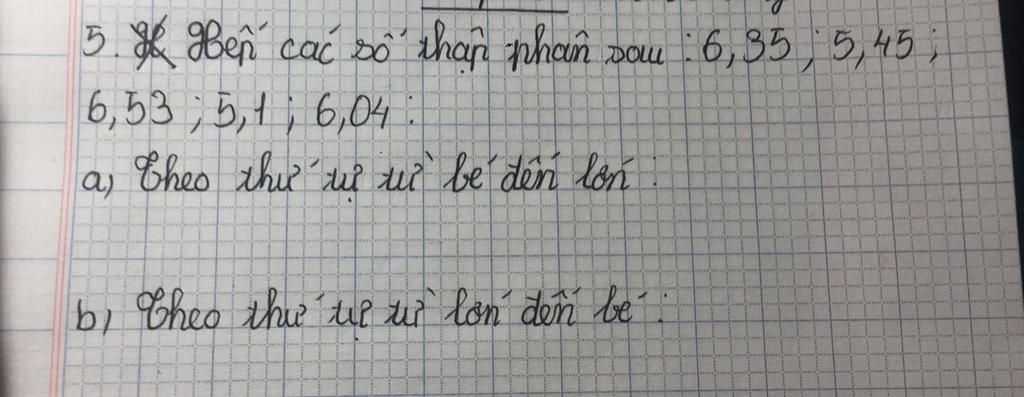 5. Xếp các số thập phân sau : 6,35 ; 5,45 ;
6,53 ; 5,1 ; 6,04 :
a) Theo thứ tự từ bé đến lớn :
b) Theo thứ tự từ lớn đến bé :